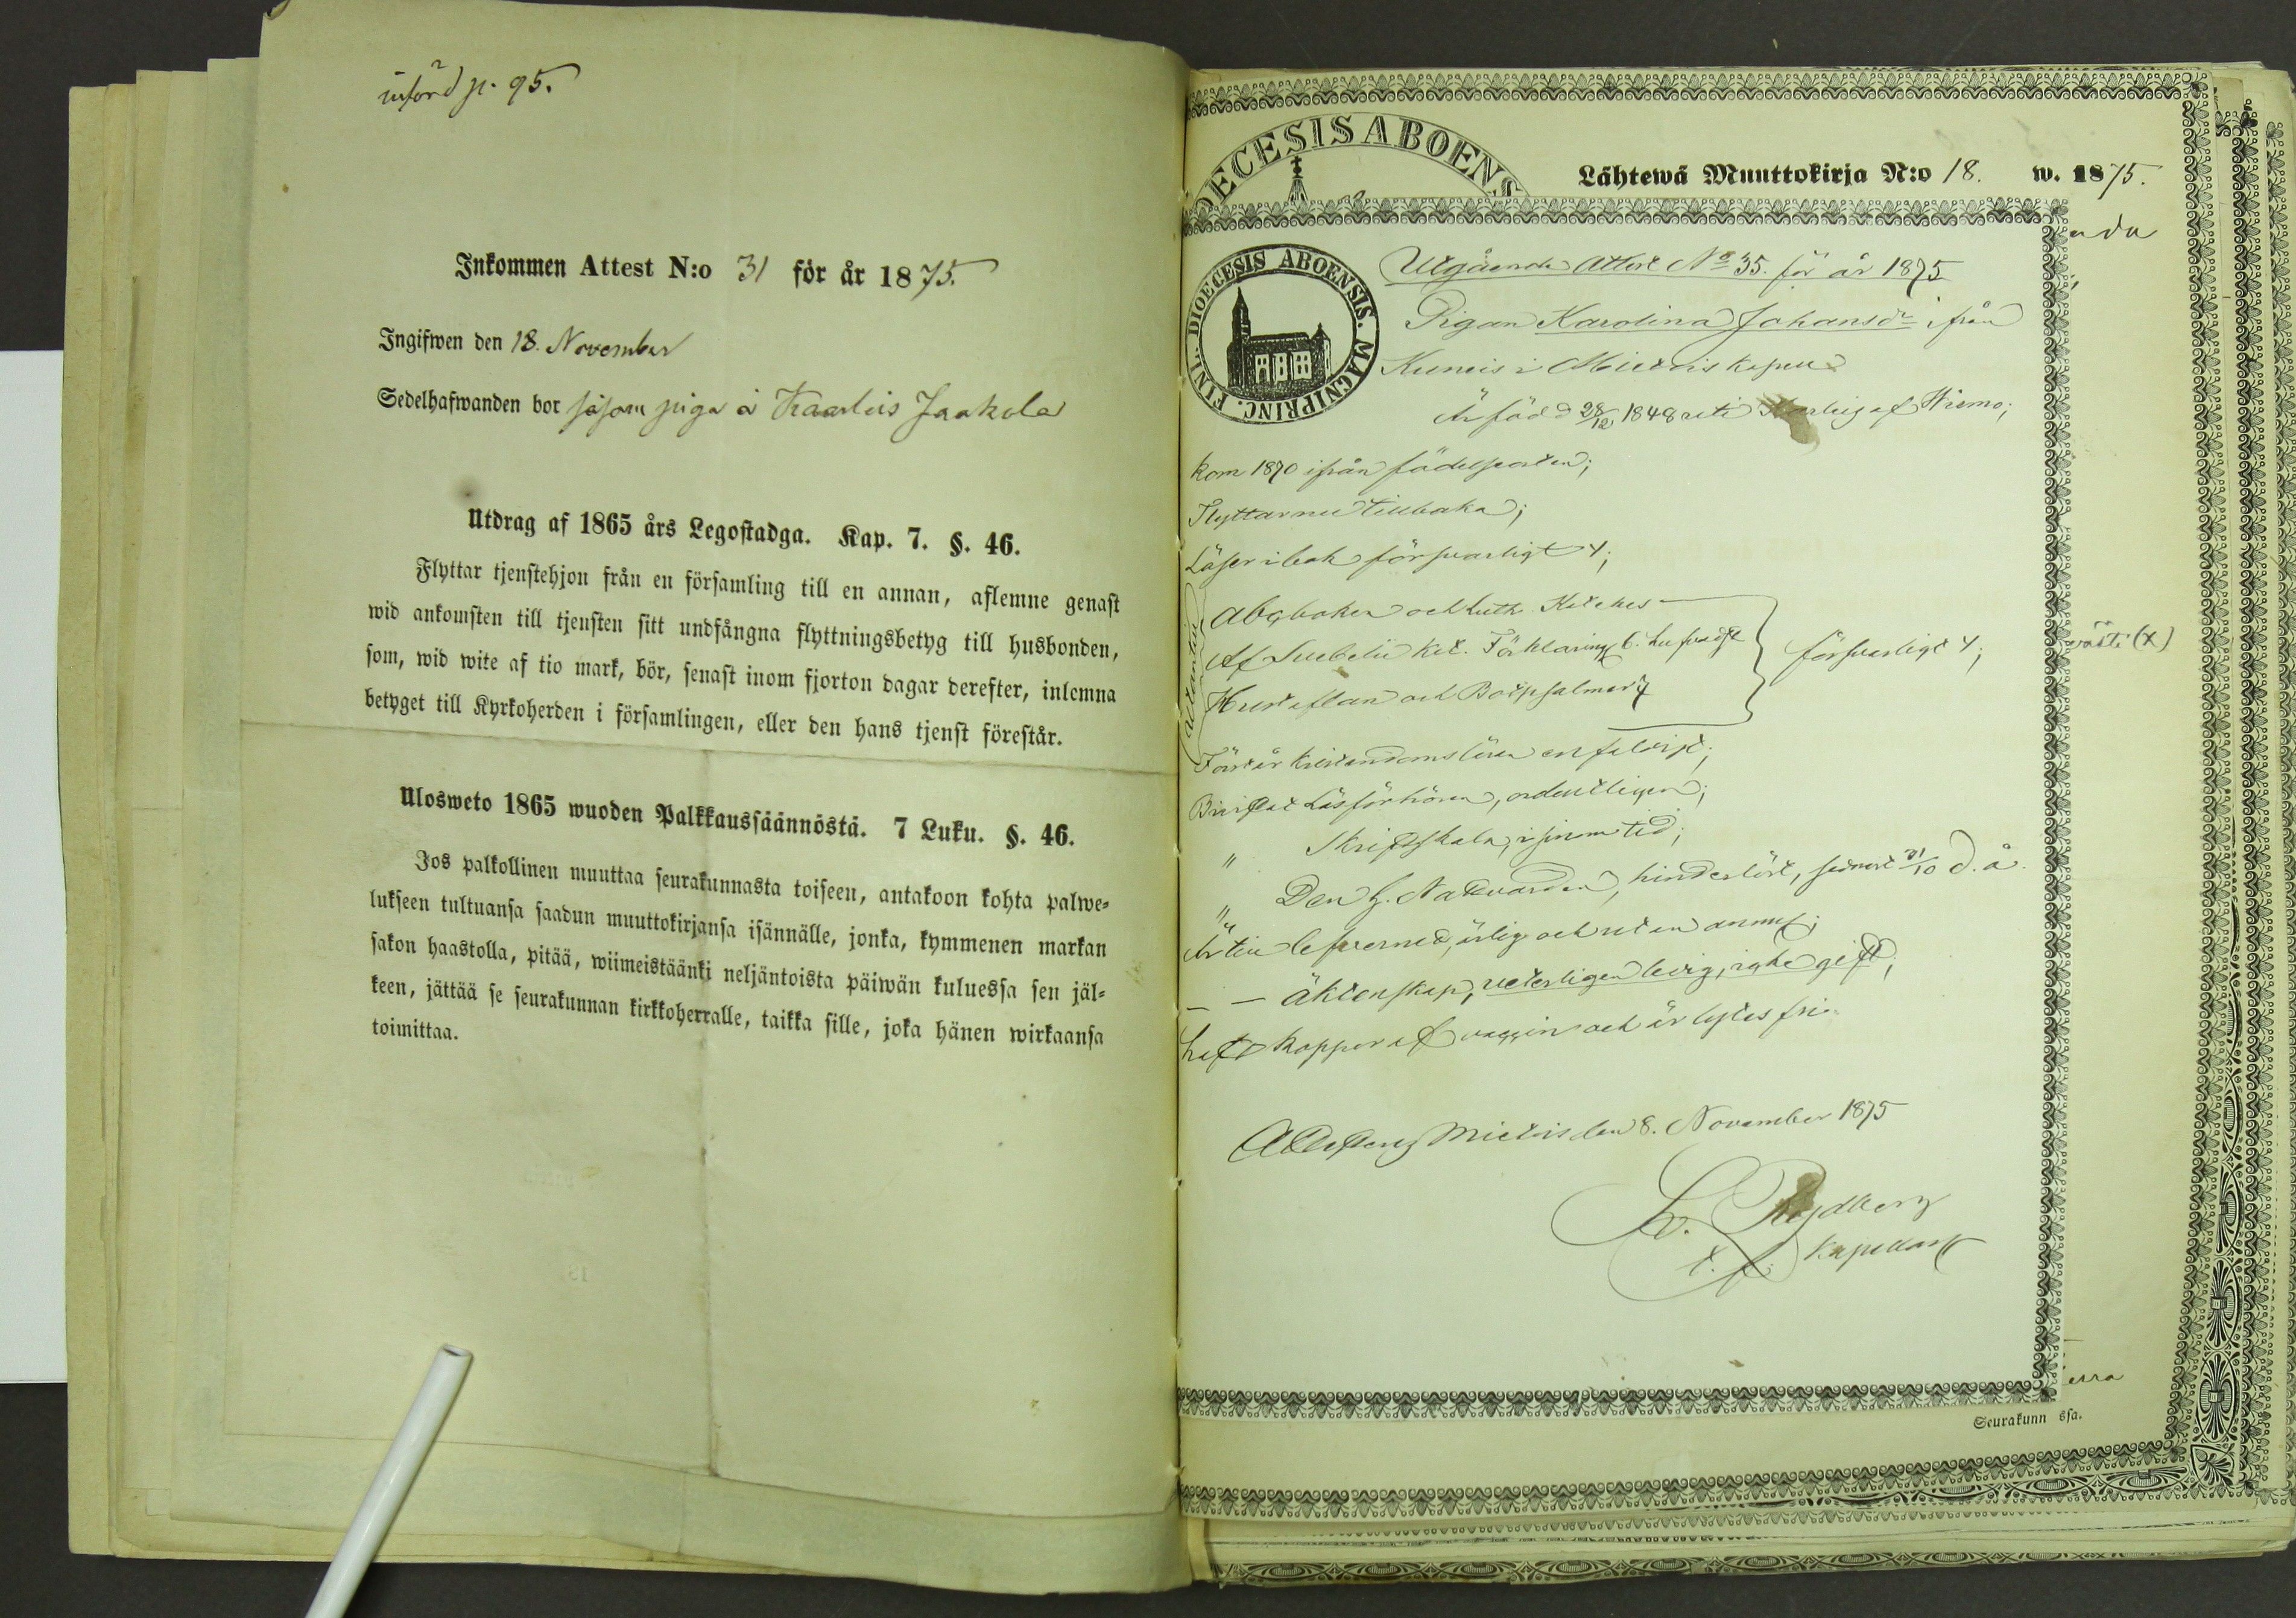 införd p. 95.
Inkommen Attest N:o 31 för år 1875.
Ingifwen den 18. November
Sedelhafwanden bor såsom piga å Kaarleis Jaakola
Utdrag af 1865 års Legostadga. Kap. 7. §. 46.
Flyttar tjenstehjon från en församling till en annan, aflemne genast
wid ankomsten till tjensten sitt undfångna flyttningsbetyg till husbonden,
som, wid wite af tio mark, bör, senast inom fjorton dagar derefter, inlemna
betyget till Kyrkoherden i församlingen, eller den hans tjenst förestår.
Ulosweto 1865 wuoden Palkkaussäännöstä. 7 Luku. §. 46.
Jos palkollinen muuttaa seurakunnasta toiseen, antakoon kohta palwe-
lukseen tultuansa saadun muuttokirjansa isännälle, jonka, kymmenen markan
sakon haastolla, pitää, wiimeistäänki neljäntoista päiwän kuluessa sen jäl-
keen, jättää se seurakunnan kirkkoherralle, taikka sille, joka hänen wirkaansa
toimittaa.
OECESIS ABOENS
Lähtewä Muuttokirja N:o 18. w. 1875.
DIOECESIS ABOENSIS. MAGNI PRINC. FINL.
Utgående Attest No 35. för år 1875
Pigan Karolina Johansdr ifrån
i Mietois kapell
Är född 28/12 1848 uti af Wirmo;
kom 1870 ifrån födelseorten;
Flyttar nu tillbaka;
Läser i bok försvarligt;
Abcboken och Luth. Kateches
Af Svebelii Kat. Förklaring 6. hufvudst
Hustaflan och Botpsalmer
försvarligt;
Förstår kristendomsläran enfaldigt;
Bevistat Läsförhören, ordentligen;
" Skriftskola, i sinom tid;
" Den h. Nattvarden, hinderlöst, sednast 31/10 d. å.
Är till lefverned, ärlig och utan anm;
— — äktenskap, veterligen ledig, icke gift;
haft koppor af vaccin och är lytesfri
Attesteras Mietois den 8. November 1875
L. Rydberg
t. f. kapellan
Seurakunn ssa.